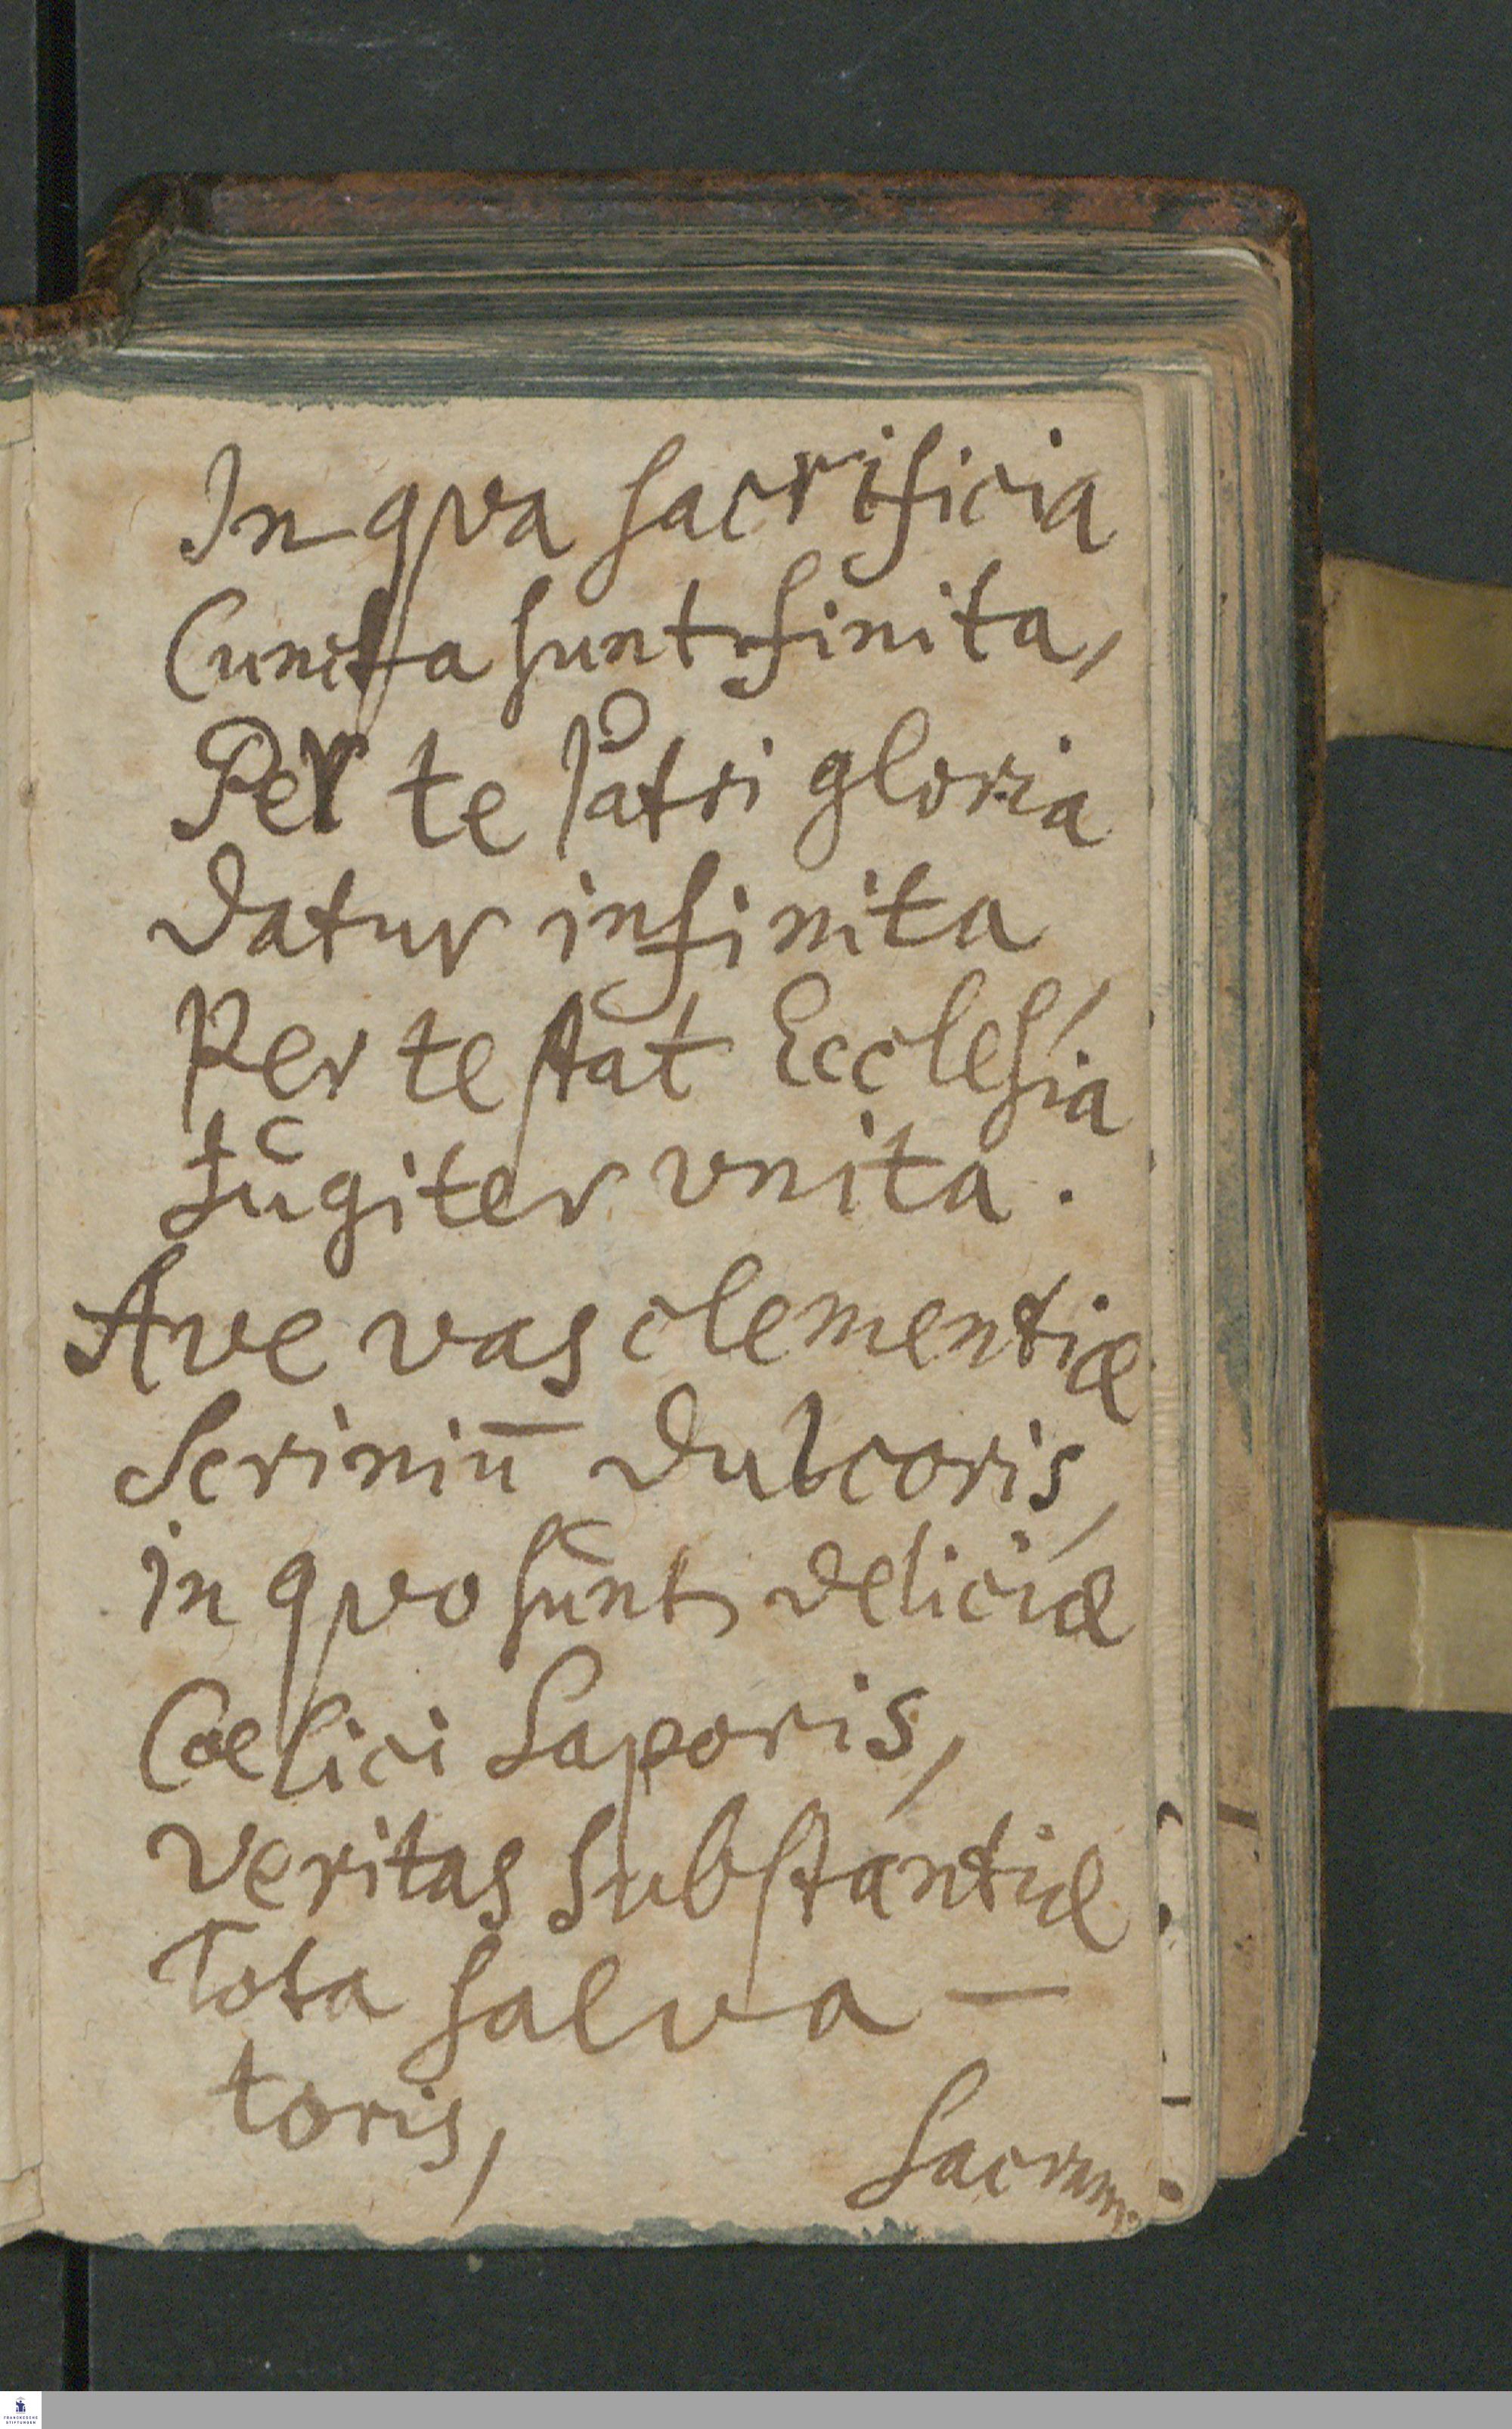 In qva sacrificia
Cuncta sunt finita,
Per te Patri gloria
datur infinita
Per te stat Ecclesia,
Iŭgiter vnita.
Ave vas clementiæ
Scriniū dulcoris,
in qvo sŭnt deliciæ
Coelici Saporis,
veritas substantiæ
Tota salva-
toris,
Sacram.
FRANCKESCHE
STIFTUNGEN